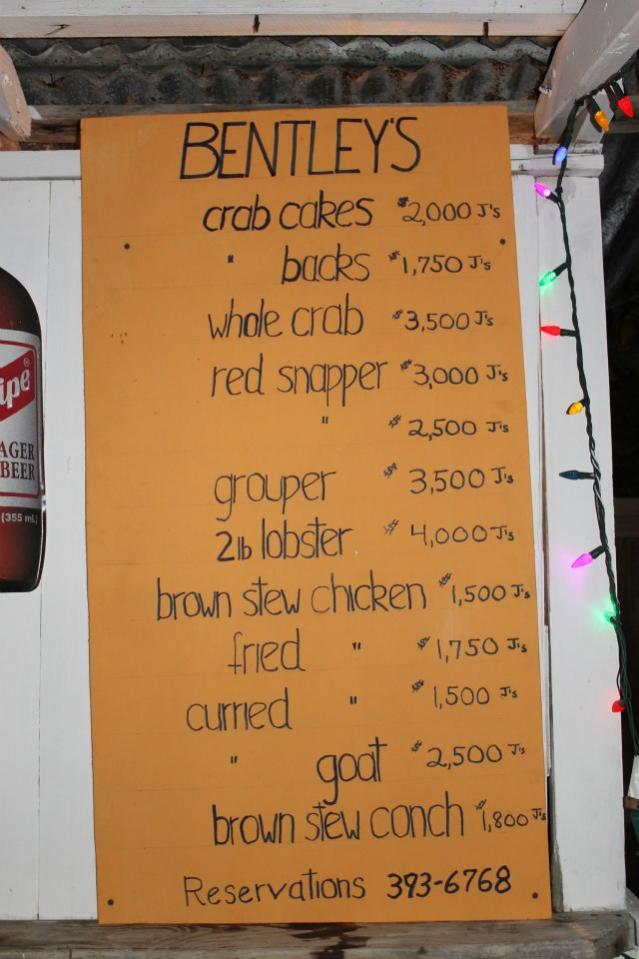 BENTLEY'S
crab cakes $2,000 J's
" backs $1,750 J's
whole crab $3,500 J's
red snapper $3,000 J's
" $2,500 J's
grouper $3,500 J's
2lb lobster $4,000 J's
brown stew chicken $1,500 J's
fried " $1,750 J's
curried " $1,500 J's
" goat $2,500 J's
brown stew conch $1,800 J's
Reservations 393-6768
ipe®
AGER
BEER
(355 mL)